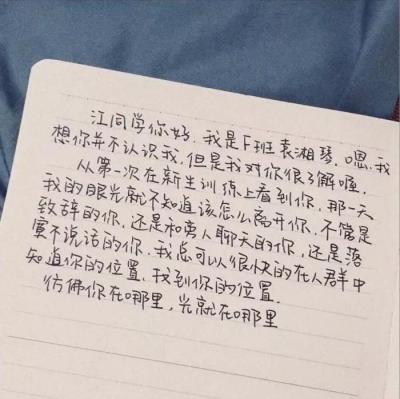 江同学你好，我是F班袁湘琴，嗯，我
想你并不认识我，但是我对你很了解喔，
从第一次在新生训练上看到你，那一天
我的眼光就不知道该怎么离开你，不管是
致辞的你，还是和旁人聊天的你，还是落
寞不说话的你，我总可以很快的在人群中
知道你的位置，找到你的位置，
彷佛你在哪里，光就在哪里